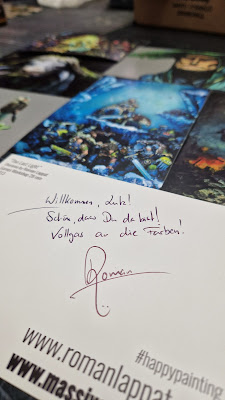 Willkommen, Lutz!
Schön, dass Du da bist!
Vollgas an die Farben!
Roman
#happypainting
www.romanlappat
www.massiv